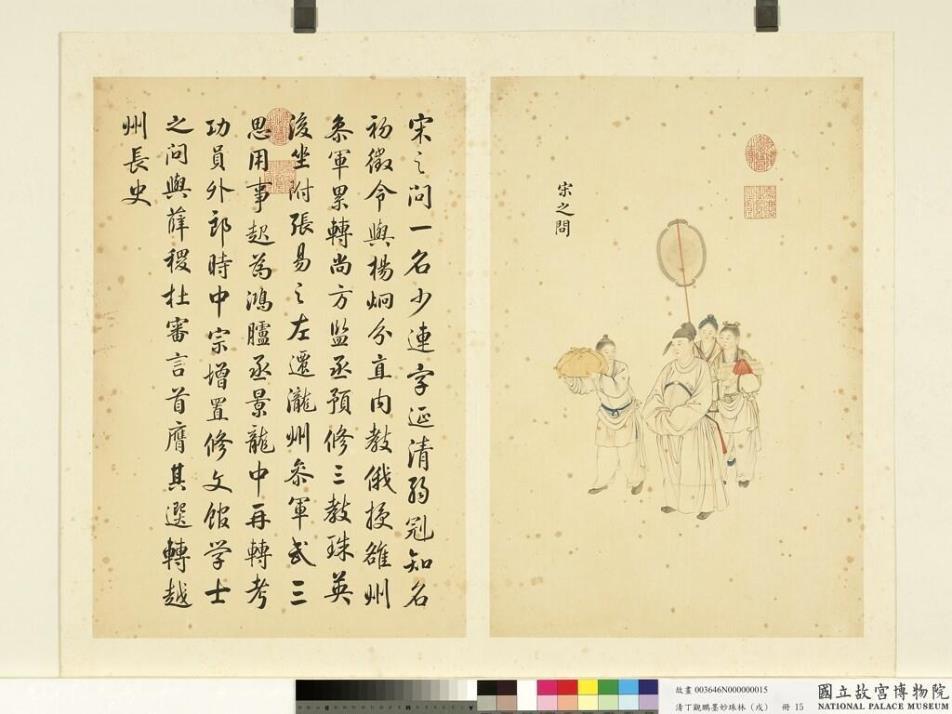 宋之問
宋之问一名少連字延清弱冠知名
初徵令與楊炯分直内教俄授雒州
叅軍累轉尚方監丞預修三教珠英
後坐附張易之左遷瀧州叅軍武三
思用事起為鴻臚丞景龍中再轉考
功員外郎時中宗增置修文館学士
之问與薛稷杜審言首膺其選轉越
州長史
故畫 003646N000000015
清丁觀鵬墨妙珠林（戌） 冊 15
國立故宮博物院
NATIONAL PALACE MUSEUM